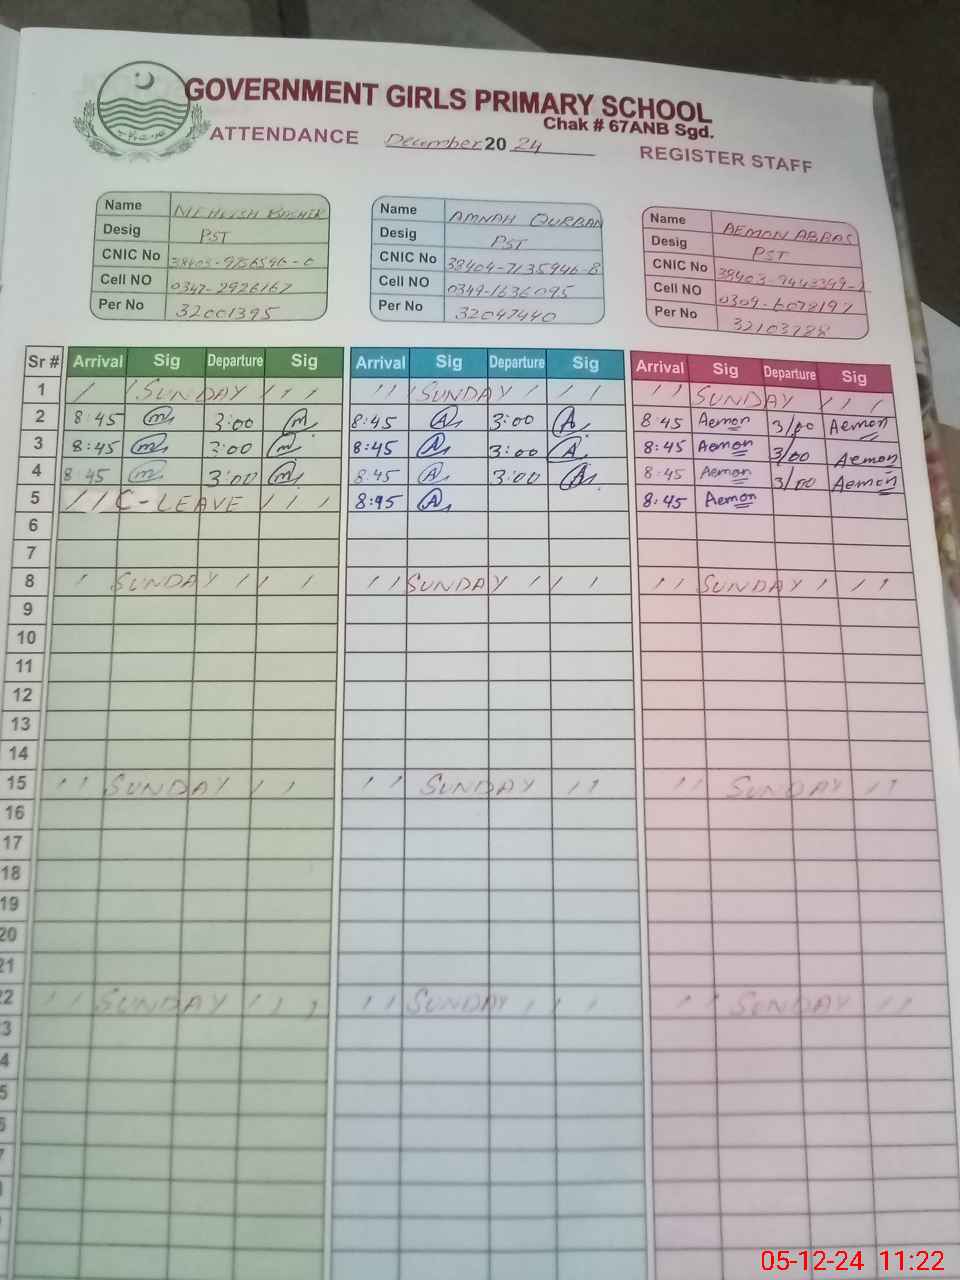 GOVERNMENT GIRLS PRIMARY SCHOOL
Chak # 67ANB Sgd.
ATTENDANCE December 2024 REGISTER STAFF
Name NEHWISH BASHIR Name AMNAH QURBAN Name AEMON ABBAS
Desig PST Desig PST Desig PST
CNIC No CNIC No 38404-7135946-8 CNIC No
Cell NO 0347-2926167 Cell NO 0349-1636095 Cell NO 0309-6078197
Per No 32001395 Per No 32047440 Per No 32103728
Sr # Arrival Sig Departure Sig Arrival Sig Departure Sig Arrival Sig Departure Sig
1 / / SUNDAY / / / / / SUNDAY / / / / / SUNDAY / / /
2 8:45 m 3:00 m 8:45 A 3:00 A 8:45 Aemon 3/00 Aemon
3 8:45 m 3:00 m 8:45 A 3:00 A 8:45 Aemon 3/00 Aemon
4 8:45 m 3:00 m 8:45 A 3:00 A 8:45 Aemon 3/00 Aemon
5 / / C-LEAVE / / / 8:45 A 8:45 Aemon
6
7
8 / SUNDAY / / / / / SUNDAY / / / / / SUNDAY / / /
9
10
11
12
13
14
15 / / SUNDAY / / / / SUNDAY / / / / SUNDAY / /
16
17
18
19
20
21
22 / / SUNDAY / / / / / SUNDAY / / / / / SUNDAY / /
3
4
5
6
7
05-12-24 11:22